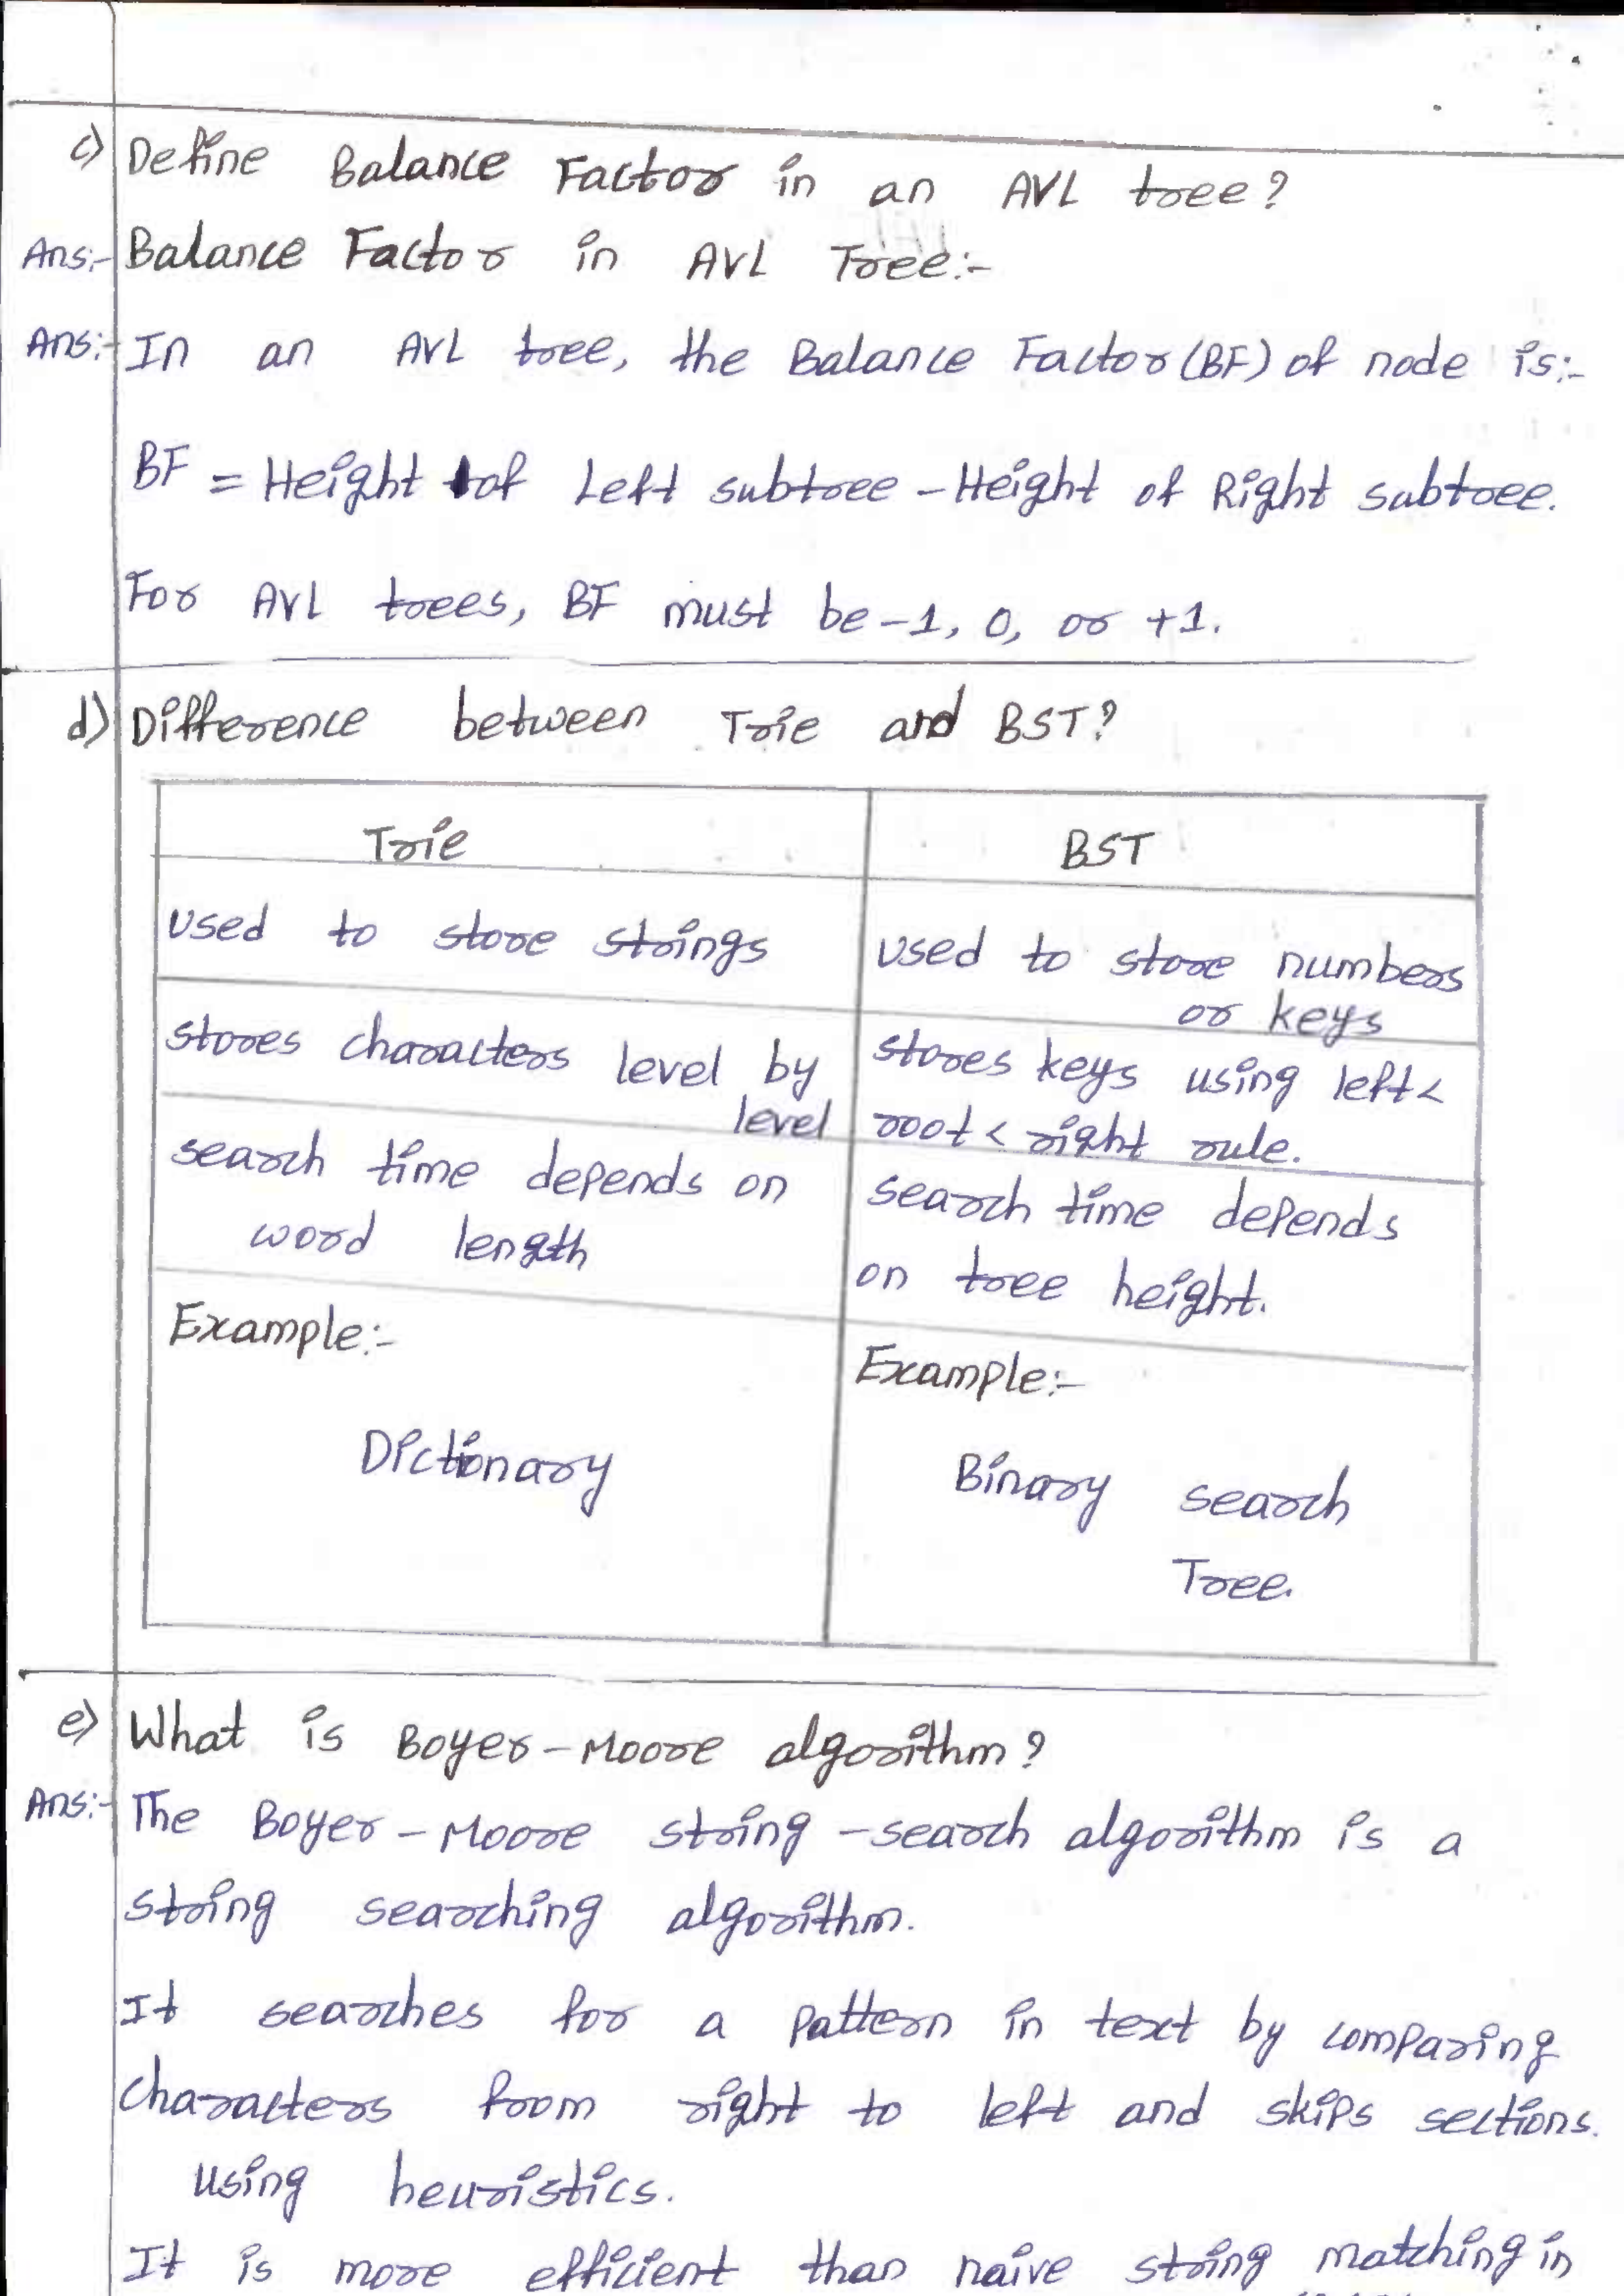 c) Define Balance Factor in an AVL tree?
Ans:- Balance Factor in AVL Tree:-
Ans:- In an AVL tree, the Balance Factor (BF) of node is:-
BF = Height of Left subtree - Height of Right subtree.
For AVL trees, BF must be -1, 0, or +1.
d) Difference between Trie and BST?
Trie
BST
used to store strings
used to store numbers
or keys
stores characters level by
level
stores keys using left <
root < right rule.
search time depends on
word length
search time depends
on tree height.
Example:-
Dictionary
Example:-
Binary search
Tree.
e) What is Boyer-Moore algorithm?
Ans:- The Boyer-Moore string-search algorithm is a
string searching algorithm.
It searches for a pattern in text by comparing
characters from right to left and skips sections.
using heuristics.
It is more efficient than naive string matching in